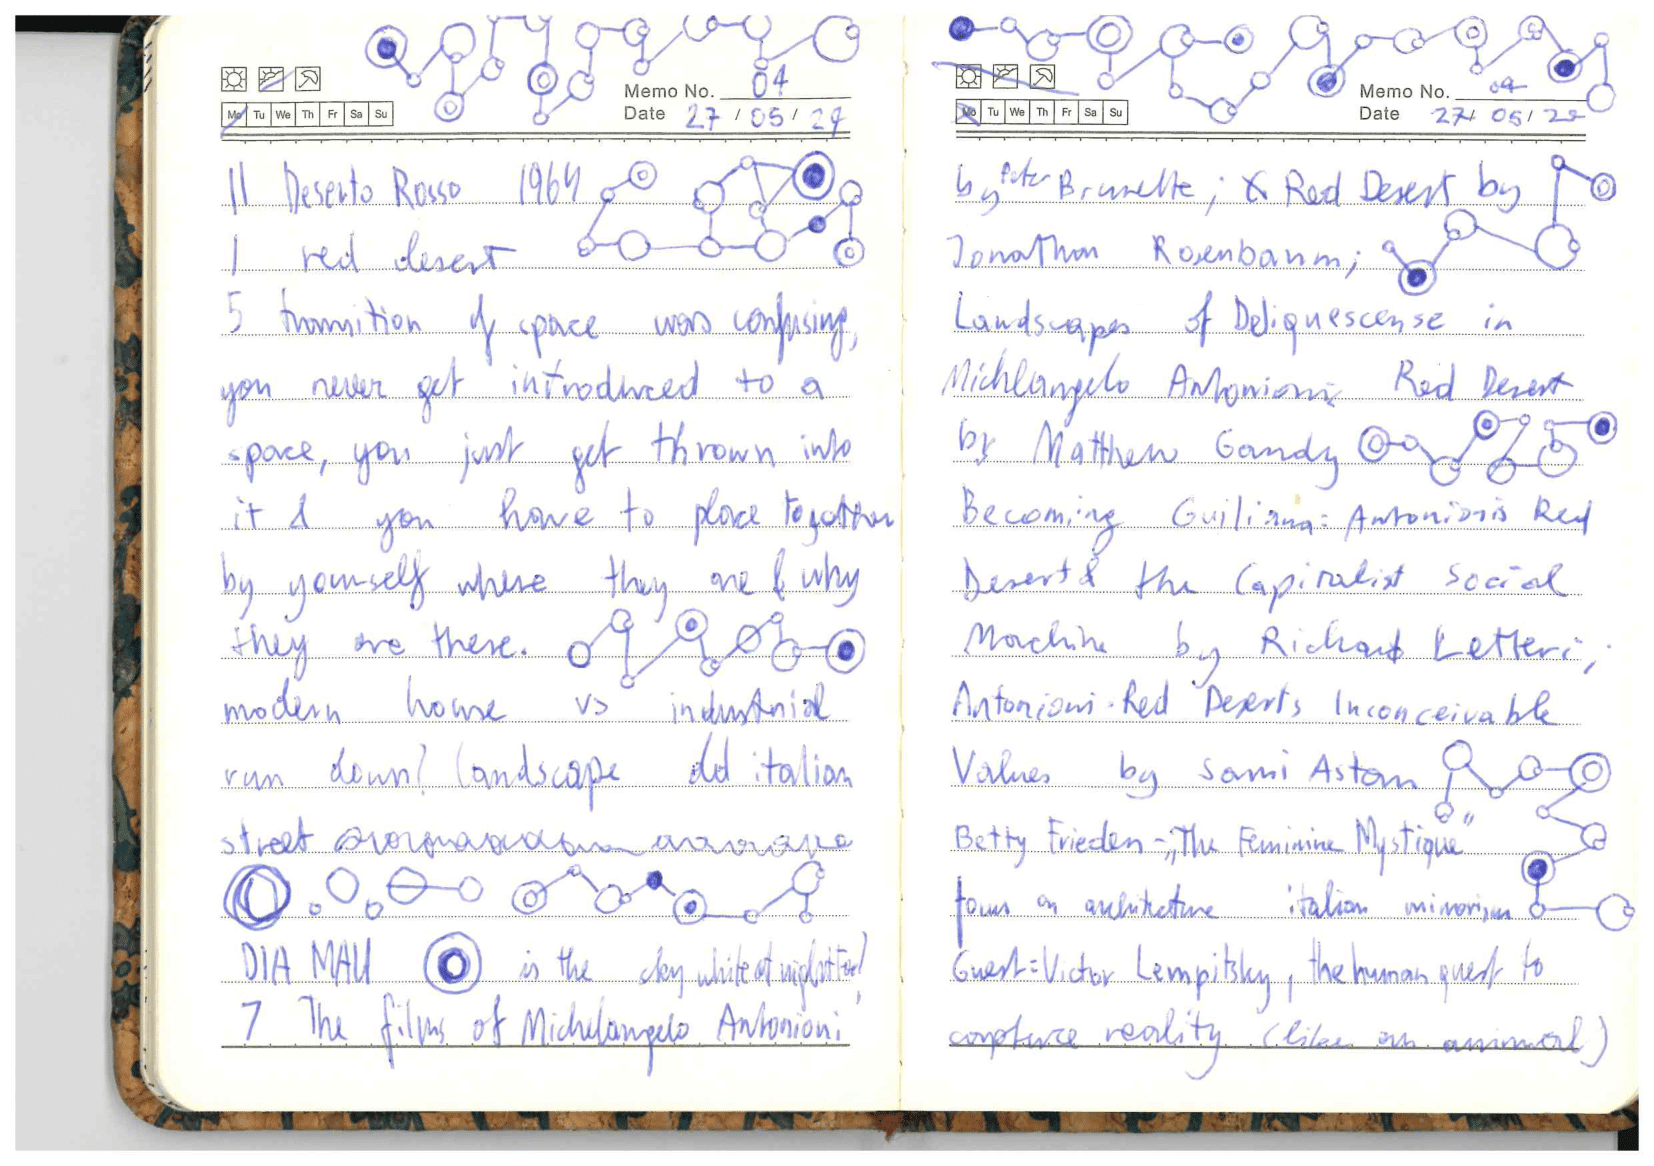 Memo No. 04
Mo Tu We Th Fr Sa Su
Date 27 / 05 / 24
11 Deserto Rosso 1964
1 red desert
5 transition of space was confusing,
you never get introduced to a
space, you just get thrown into
it & you have to place together
by yourself where they are & why
they are there.
modern house vs industrial
run down? landscape old italian
street
DIA MAU is the sky white at night too?
7 The films of Michelangelo Antonioni
Memo No. 04
Mo Tu We Th Fr Sa Su
Date 27 / 05 / 24
by Peter Brunette; & Red Desert by
Jonathan Rosenbaum;
Landscapes of Deliquescense in
Michlangelo Antonionis Red Desert
by Matthew Gandy
Becoming Guiliana: Antonionis Red
Desert & the Capitalist Social
Machine by Richard Letteri;
Antonioni Red Deserts Inconceivable
Values by Sami Astan
Betty Frieden - „The Feminine Mystique"
focus on architecture italian
Guest: Victor Lempitsky, the human quest to
capture reality (like an animal)